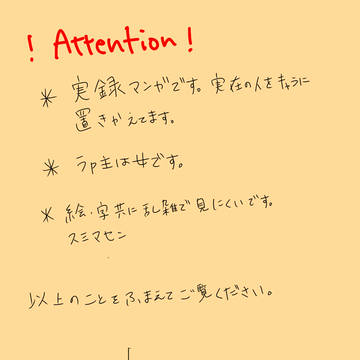 ! Attention!
* 実録マンガです。実在の人をキャラに
置きかえてます。
* うp主は女です。
* 絵・字共に乱雑で見にくいです。
スミマセン
以上のことをふまえてご覧ください。